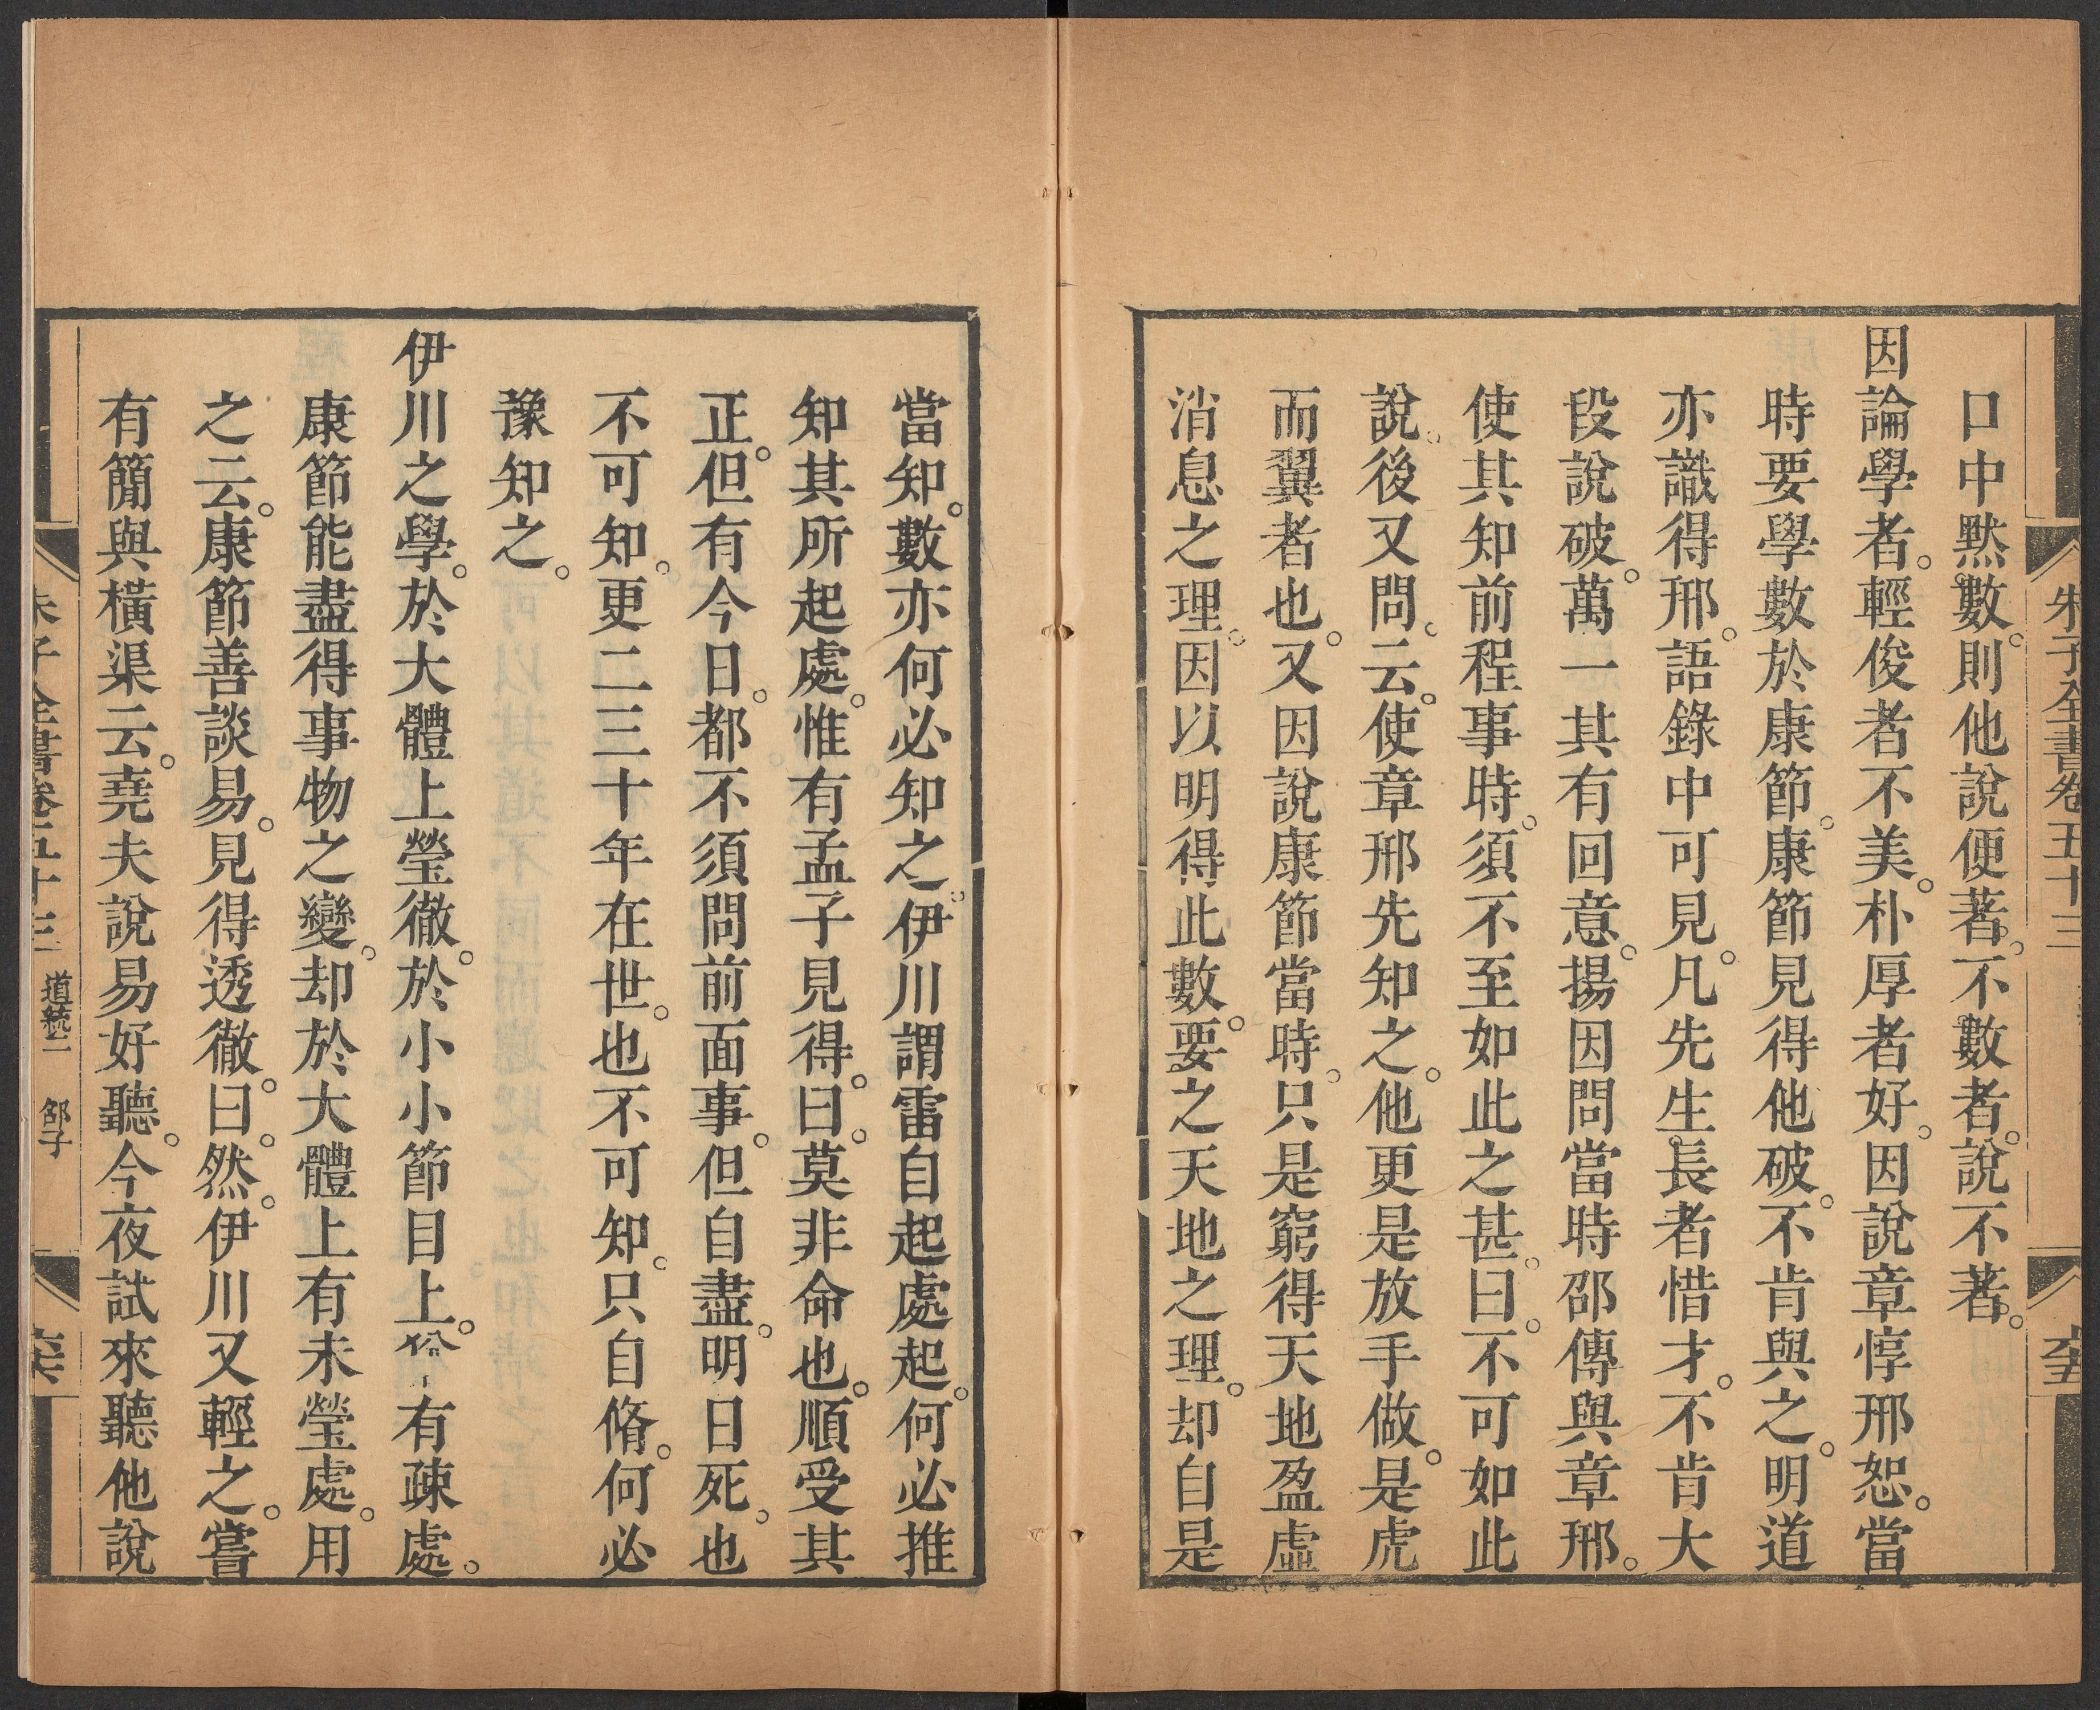 朱子全書卷五十三
口中黙數。則他說便著。不數者。說不著。
因論學者。輕俊者不美。朴厚者好。因說章惇邢恕。當
時要學數於康節。康節見得他破。不肯與之。明道
亦識得邢。語錄中可見。凡先生長者惜才。不肯大
段說破。萬一其有回意。揚因問當時邵傳與章邢。
使其知前程事時。須不至如此之甚。曰。不可如此
說。後又問。云。使章邢先知之。他更是放手做。是虎
而翼者也。又因說康節當時。只是窮得天地盈虛
消息之理。因以明得此數。要之天地之理。却自是
當知。數亦何必知之。伊川謂雷自起處起。何必推
知其所起處。惟有孟子見得。曰。莫非命也。順受其
正。但有今日。都不須問前面事。但自盡。明日死。也
不可知。更二三十年在世。也不可知。只自脩。何必
豫知之。
伊川之學。於大體上瑩徹。於小小節目上。有疎處。
康節能盡得事物之變。却於大體上有未瑩處。用
之云。康節善談易。見得透徹。曰。然。伊川又輕之。嘗
有簡與橫渠云。堯夫說易好聽。今夜試來聽他說
朱子全書卷五十三 道統二 邵子